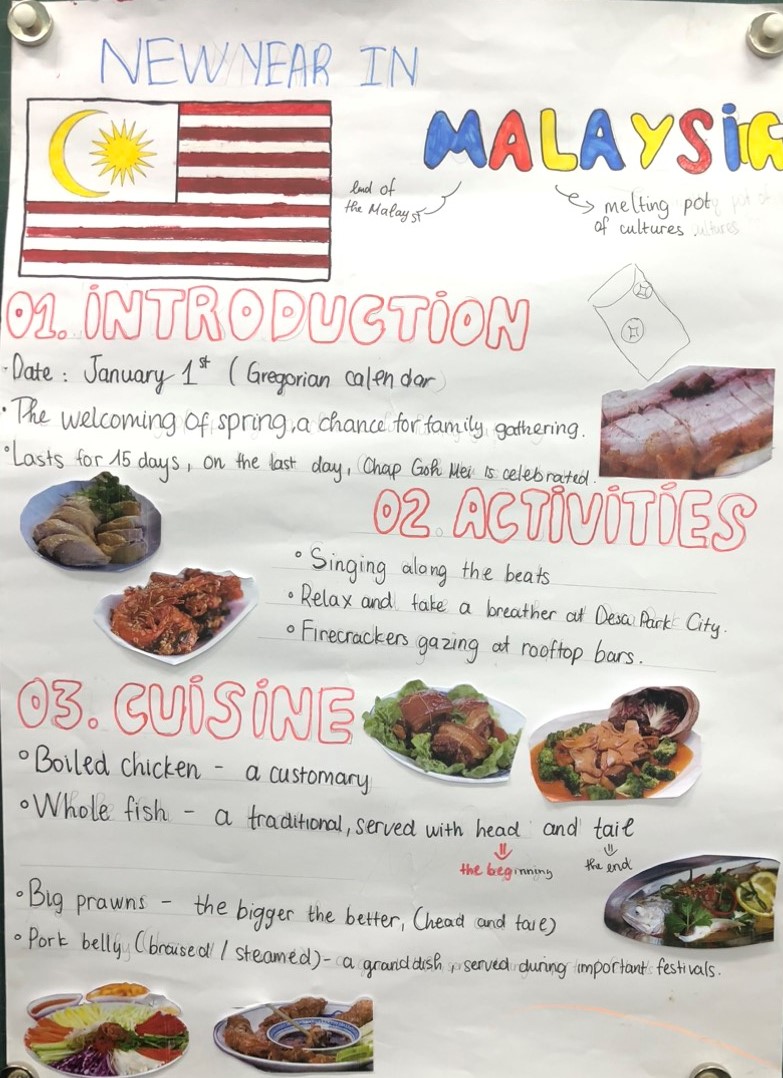 NEW YEAR IN
MALAYSIA
land of
the Malayst
melting pot
of cultures
01. INTRODUCTION
Date: January 1st (Gregorian calendar)
The welcoming of spring, a chance for family gathering.
Lasts for 15 days, on the last day, Chap Goh Mei is celebrated.
02. ACTIVITIES
Singing along the beats
Relax and take a breather at Desa Park City.
Firecrackers gazing at rooftop bars.
03. CUISINE
Boiled chicken - a customary
Whole fish - a traditional, served with head and tail
the beginning the end
Big prawns - the bigger the better, (head and tale)
Pork belly (braised / steamed) - a grand dish, served during important festivals.